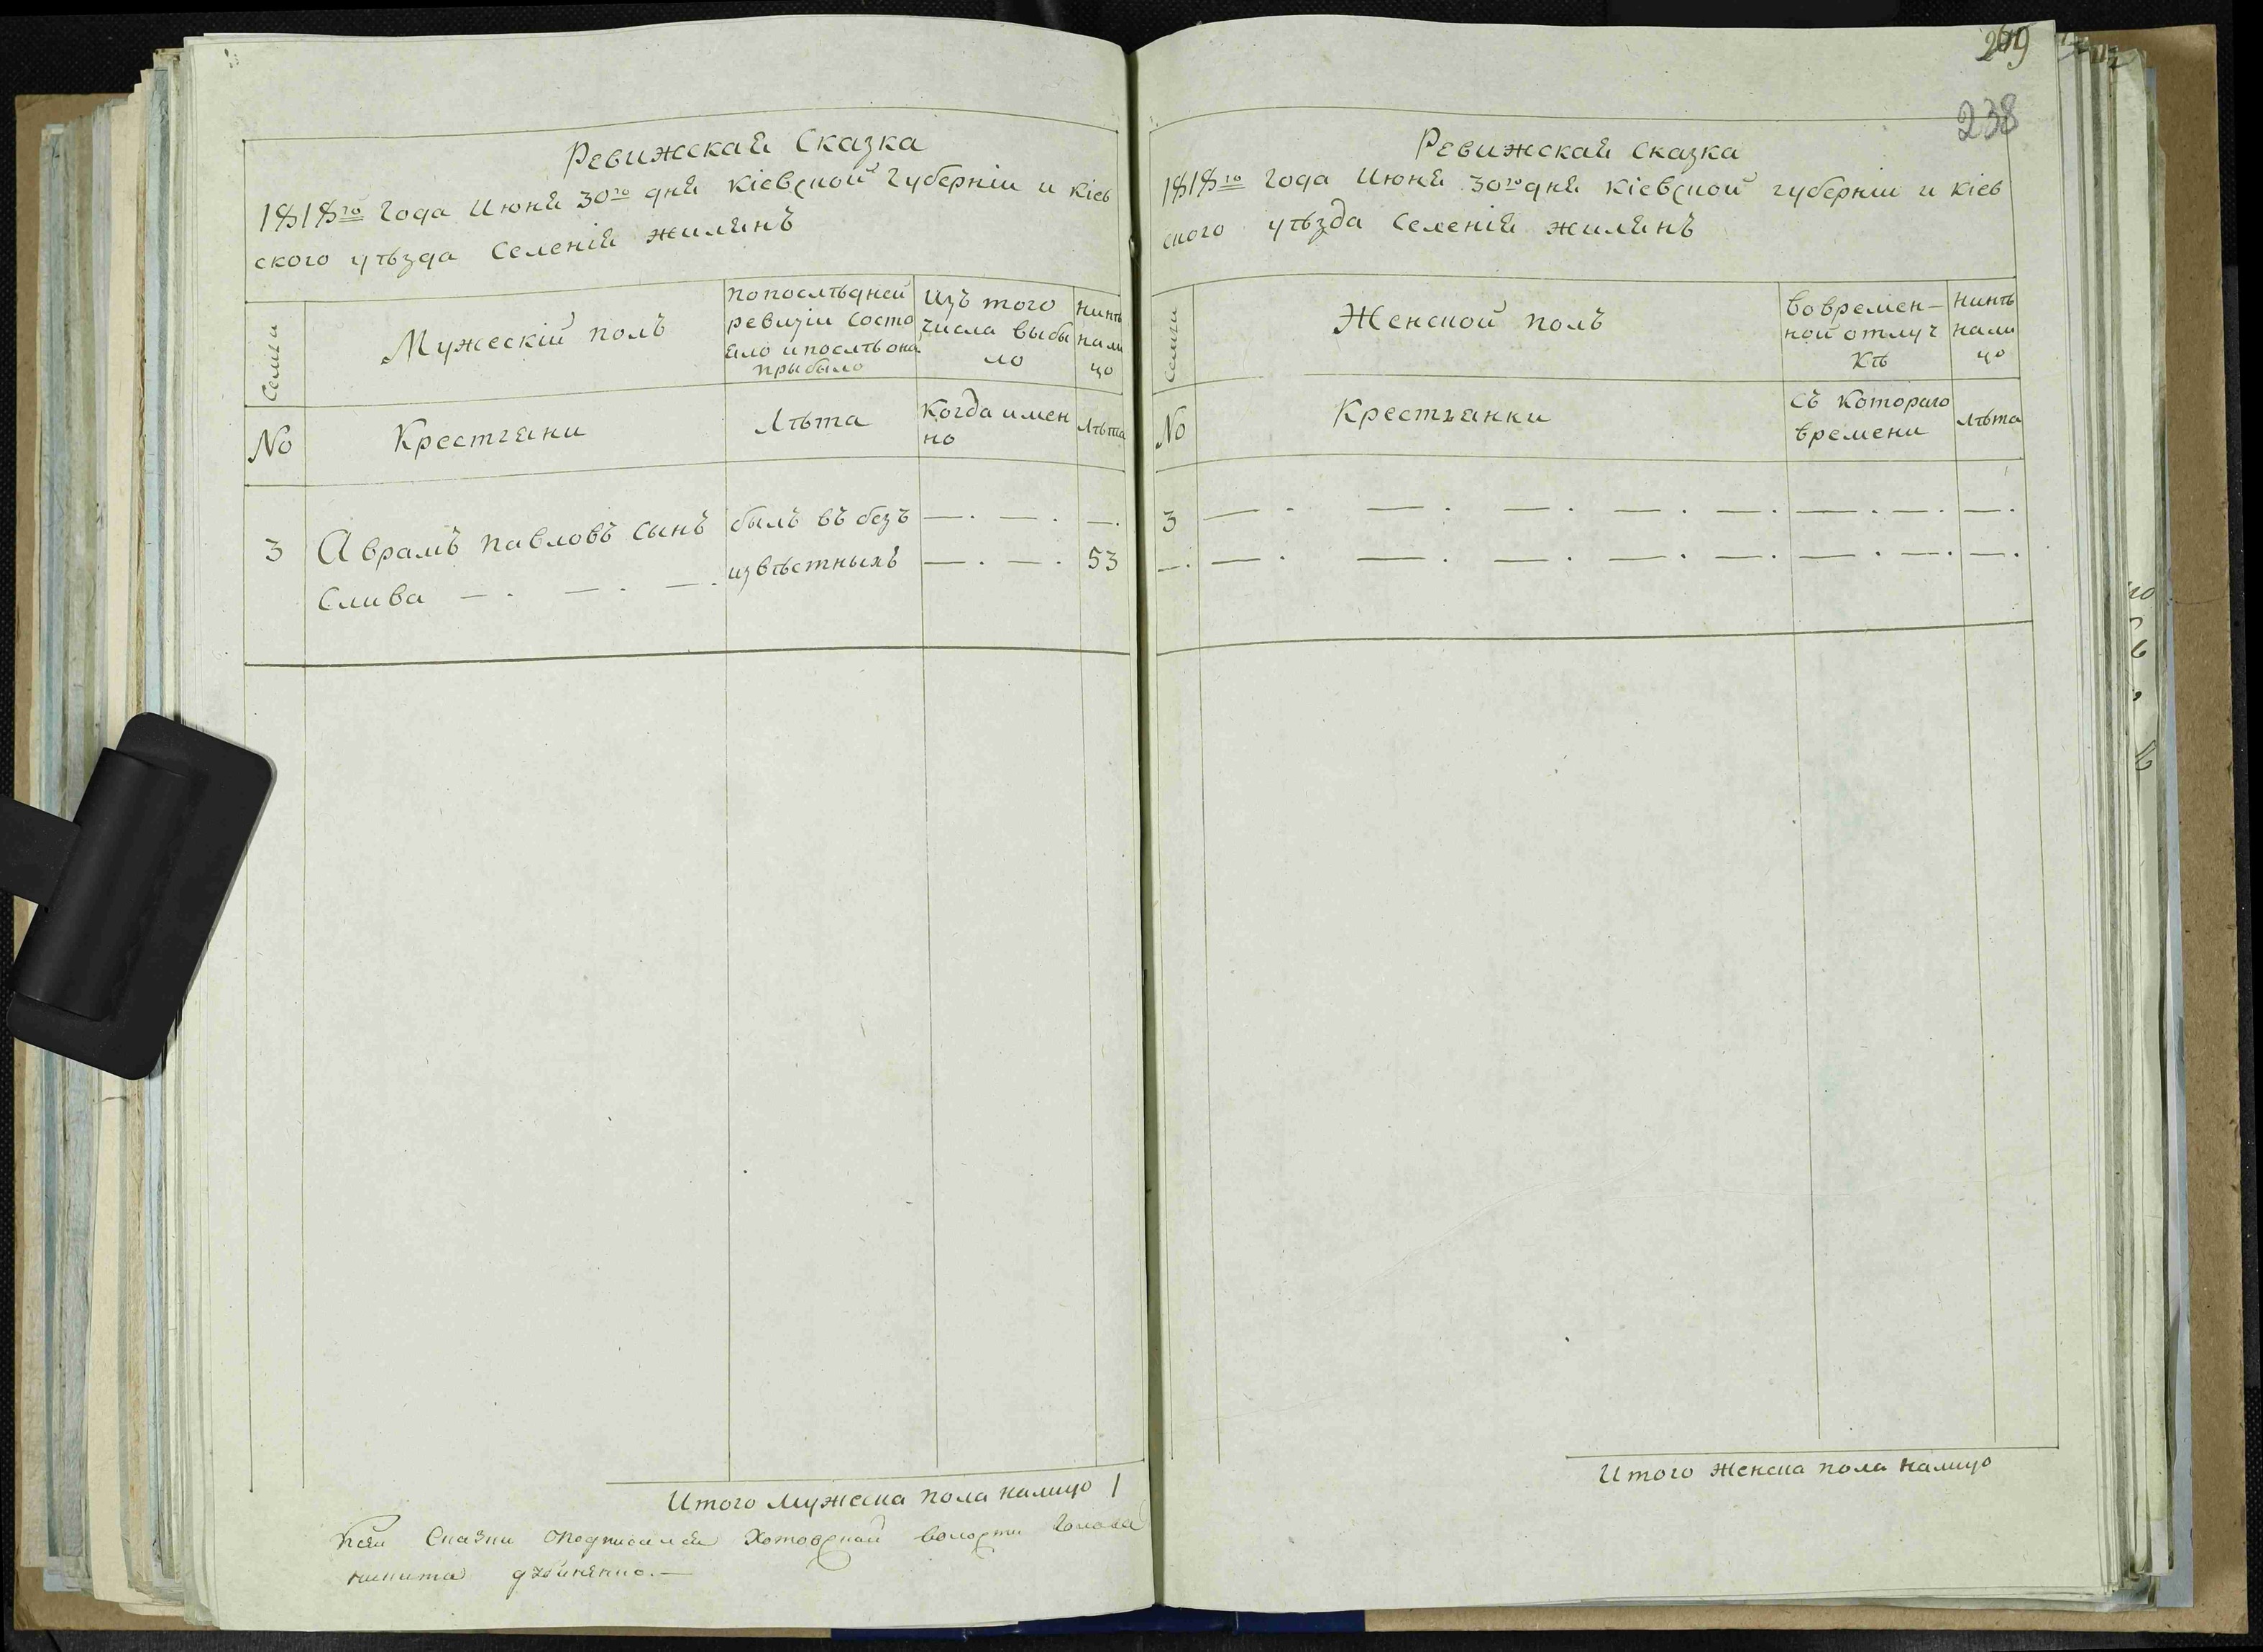 Ревижская Сказка
1818го Года Июня 30го дня Кіевской Губерніи и Кіев
ского уѣзда Селенія Жилянъ
Семьи
Мужескій полъ
по послѣдней
ревизіи состо
яло и послѣ она
прыбыло
Изъ того
числа выбы
ло
нинѣ
нали
цо
No
Крестяни
Лѣта
Когда имен
но
Лѣта
3 Аврамъ павловъ сынъ былъ въ безъ —. —. —.
Слива —. —. —. извѣстныхъ —. —. 53
Итого мужеска пола налицо 1
Сказки подписался Хотовской волости Голова
никита
269
238
Ревижская Сказка
1818го Года Июня 30го дня Кіевской губерніи и Кіев
ского уѣзда Селенія жилянъ
Семьи
Женской полъ
вовремен-
ной отлуч
кѣ
нинѣ
нали
цо
No
Крестянки
съ Котораго
времени
Лѣта
3 —. —. —. —. —. —. —. —.
—. —. —. —. —. —. —. —. —.
Итого Женска пола налицо